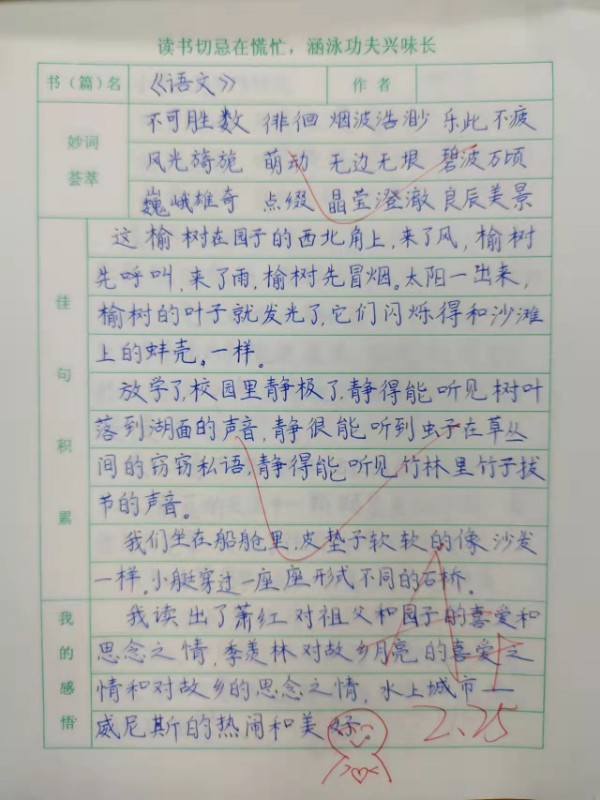 读书切忌在慌忙，涵泳功夫兴味长
书（篇）名 《语文》 作者
妙词荟萃
不可胜数 徘徊 烟波浩渺 乐此不疲
风光旖旎 萌动 无边无垠 碧波万顷
巍峨雄奇 点缀 晶莹澄澈 良辰美景
佳句积累
这榆树在园子的西北角上，来了风，榆树
先呼叫，来了雨，榆树先冒烟。太阳一出来，
榆树的叶子就发光了，它们闪烁得和沙滩
上的蚌壳。一样。
放学了，校园里静极了，静得能听见树叶
落到湖面的声音，静很能听到虫子在草丛
间的窃窃私语，静得能听见竹林里竹子拔
节的声音。
我们坐在船舱里，皮垫子软软的像沙发
一样。小艇穿过一座座形式不同的石桥。
我的感悟
我读出了萧红对祖父和园子的喜爱和
思念之情，季羡林对故乡月亮的喜爱之
情和对故乡的思念之情，水上城市——
威尼斯的热闹和美好。
A+
2.25